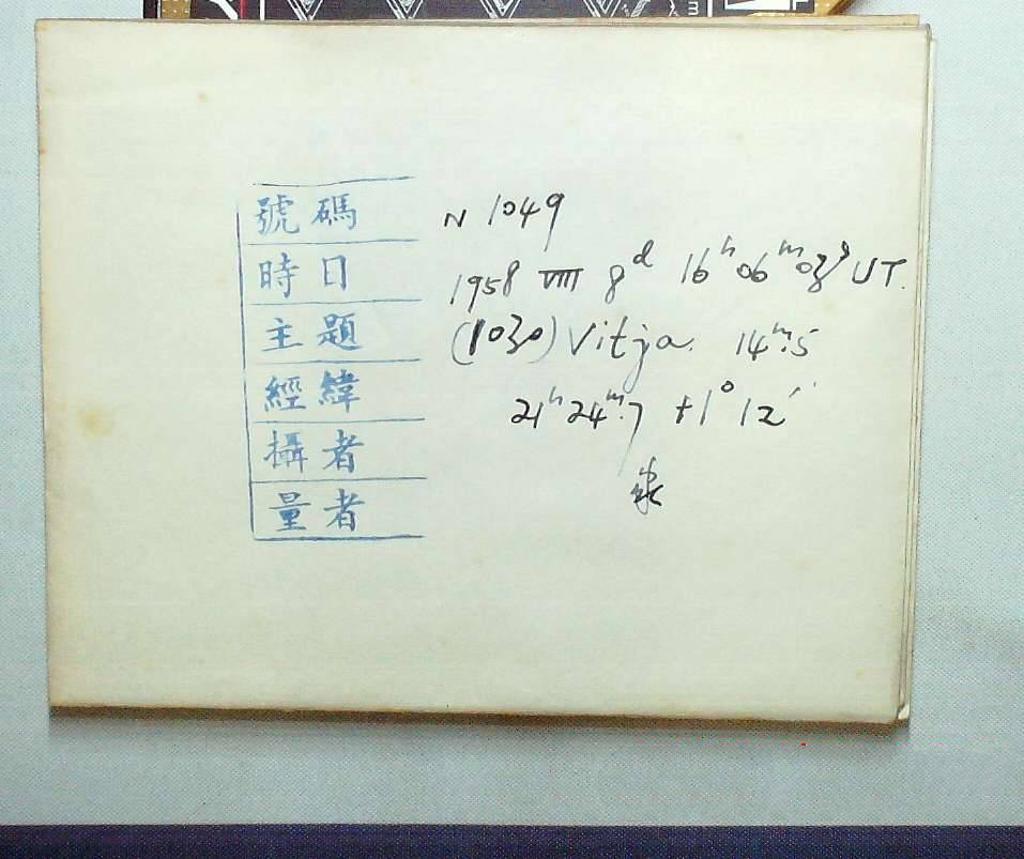 號碼 N 1049
時日 1958 VIII 8d 16h 06m 03s UT.
主題 (1030) Vitja. 14m.5
經緯 21h 24m.7 +1° 12'
攝者
量者